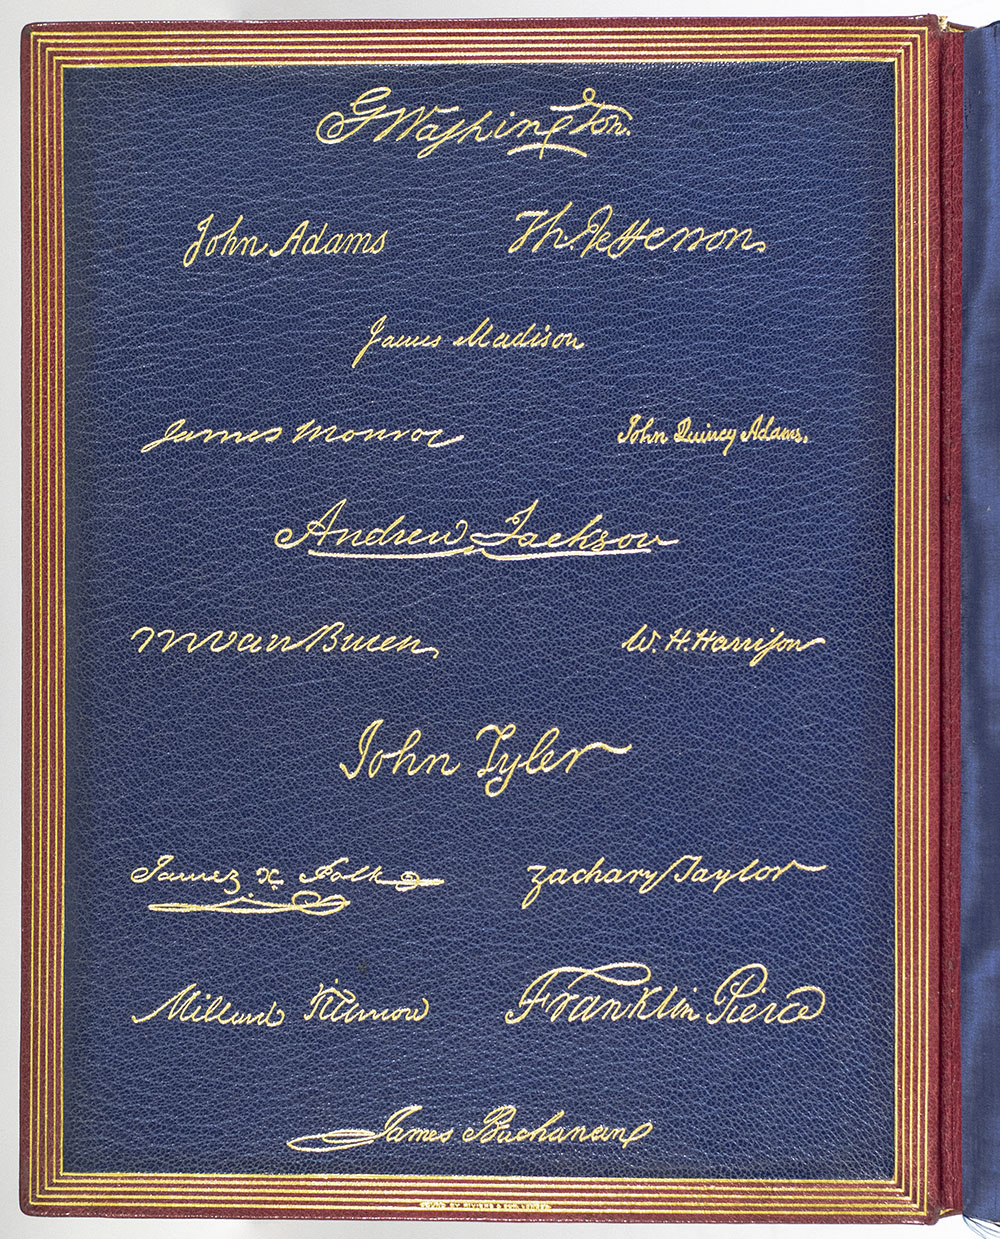 GWashington.
John Adams Th. Jefferson
James Madison
James Monroe John Quincy Adams.
Andrew Jackson
M Van Buren W. H. Harrison
John Tyler
James K Polk Zachary Taylor
Millard Fillmore Franklin Pierce
James Buchanan
BOUND BY RIVIERE & SON, LONDON